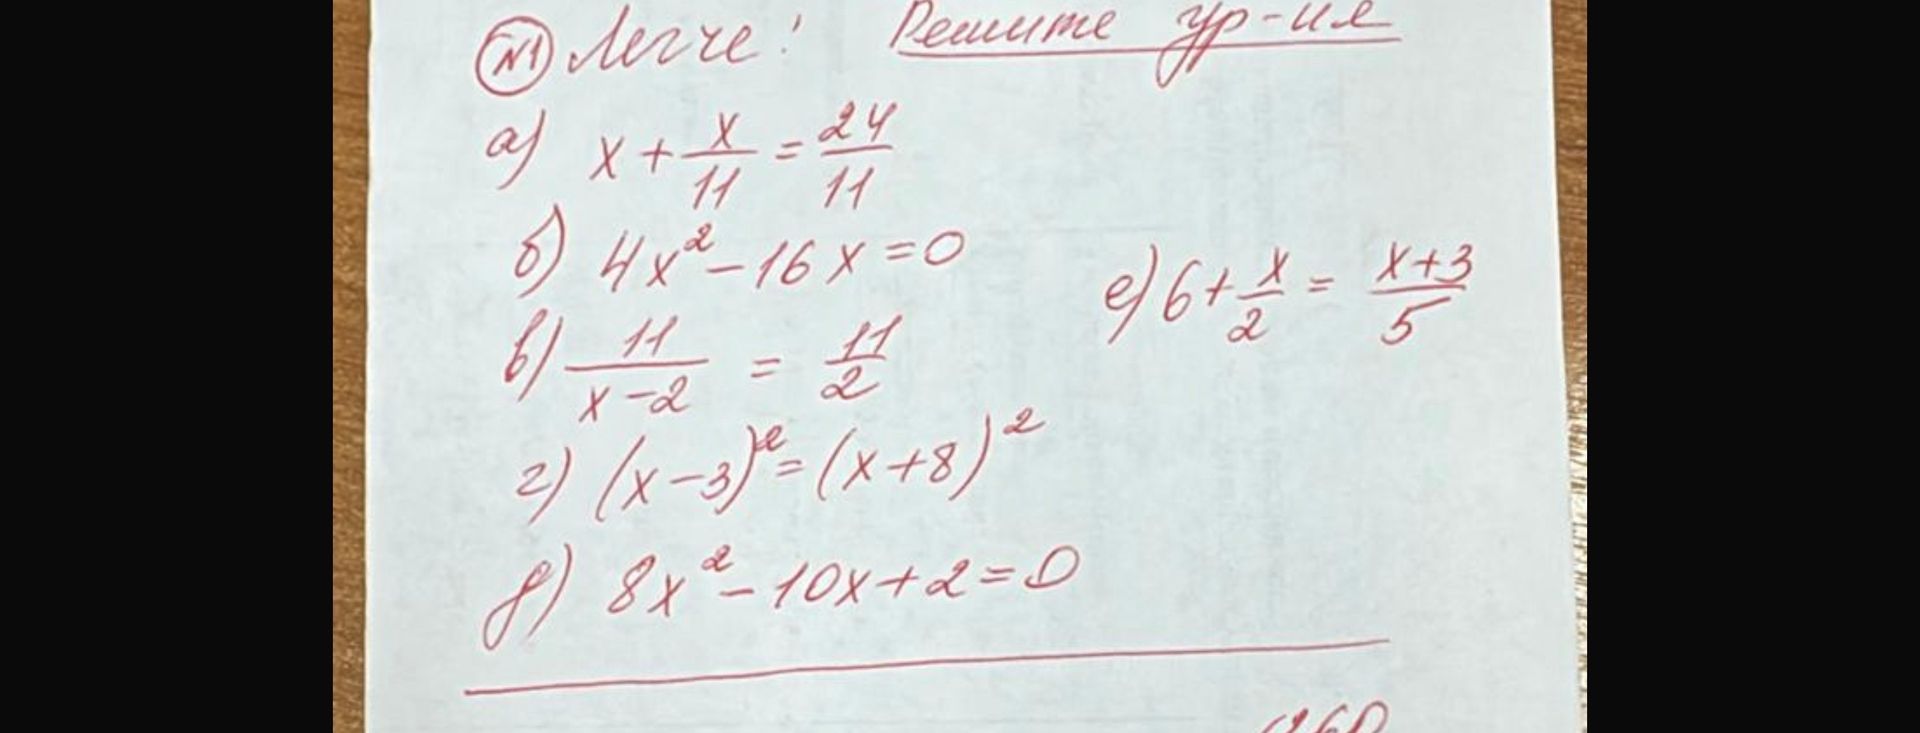 №1 Легче! Решите ур-ия
а) x + x/11 = 24/11
б) 4x² - 16x = 0
в) 11/(x-2) = 11/2
г) (x-3)² = (x+8)²
д) 8x² - 10x + 2 = 0
е) 6 + x/2 = (x+3)/5